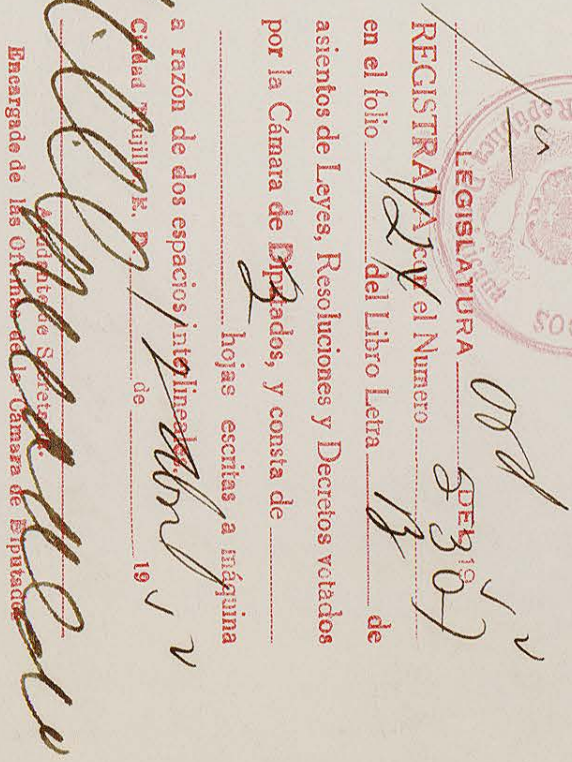 LEGISLATURA Ord DE 19 52
REGISTRADA con el Numero 5307
en el folio del Libro Letra B de
asientos de Leyes, Resoluciones y Decretos votados
por la Cámara de Diputados, y consta de
2 hojas escritas a máquina
a razón de dos espacios interlineales.
Ciudad Trujillo, R. D., de 19 52
Ayudante de Secretaría,
Encargado de las Oficinas de la Cámara de Diputados